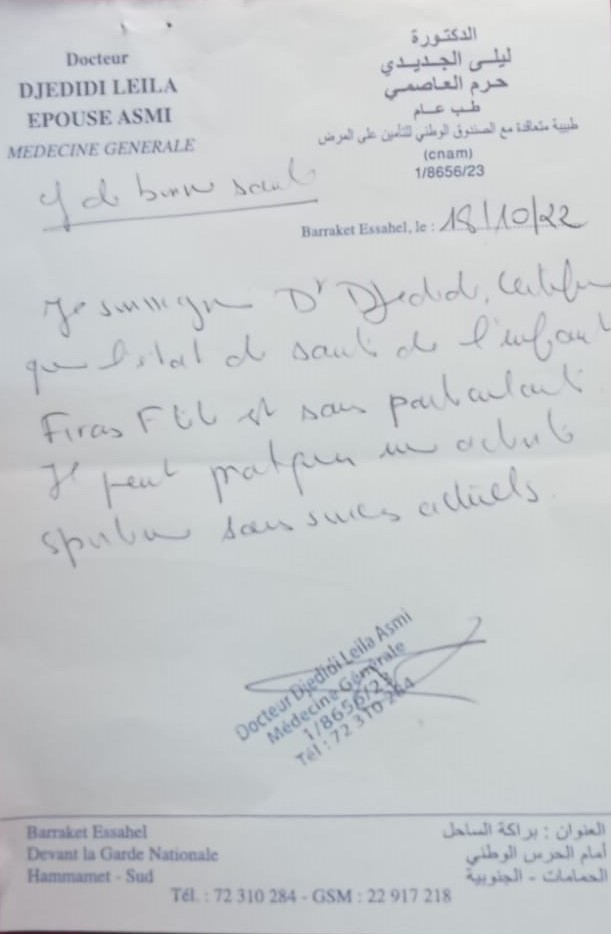 Docteur
DJEDIDI LEILA
EPOUSE ASMI
MEDECINE GENERALE
الدكتورة
ليلى الجديدي
حرم العاصمي
طب عام
طبيبة متعاقدة مع الصندوق الوطني للتأمين على المرض
(cnam)
1/8656/23
de bonne santé
Barraket Essahel, le : 18/10/22
Je soussigné Dr Djedidi, certifie
que l'état de santé de l'enfant
Firas est sans particularité
Il peut pratiquer une activité
sportive sans risques actuels.
Docteur Djedidi Leila Asmi
Médecine Générale
1/8656/23
Tél : 72 310 284
Barraket Essahel
Devant la Garde Nationale
Hammamet - Sud
العنوان : براكة الساحل
أمام الحرس الوطني
الحمامات - الجنوبية
Tél. : 72 310 284 - GSM : 22 917 218